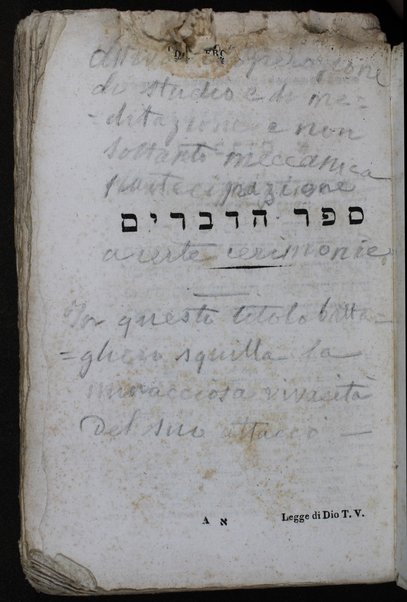 di studio e di me-
-ditazione e non
soltanto meccanica
partecipazione
ספר הדברים
a certe cerimonie.
In questo titolo batta-
-gliero squilla la
minacciosa vivacità
del suo attacco —
A א Legge di Dio T. V.